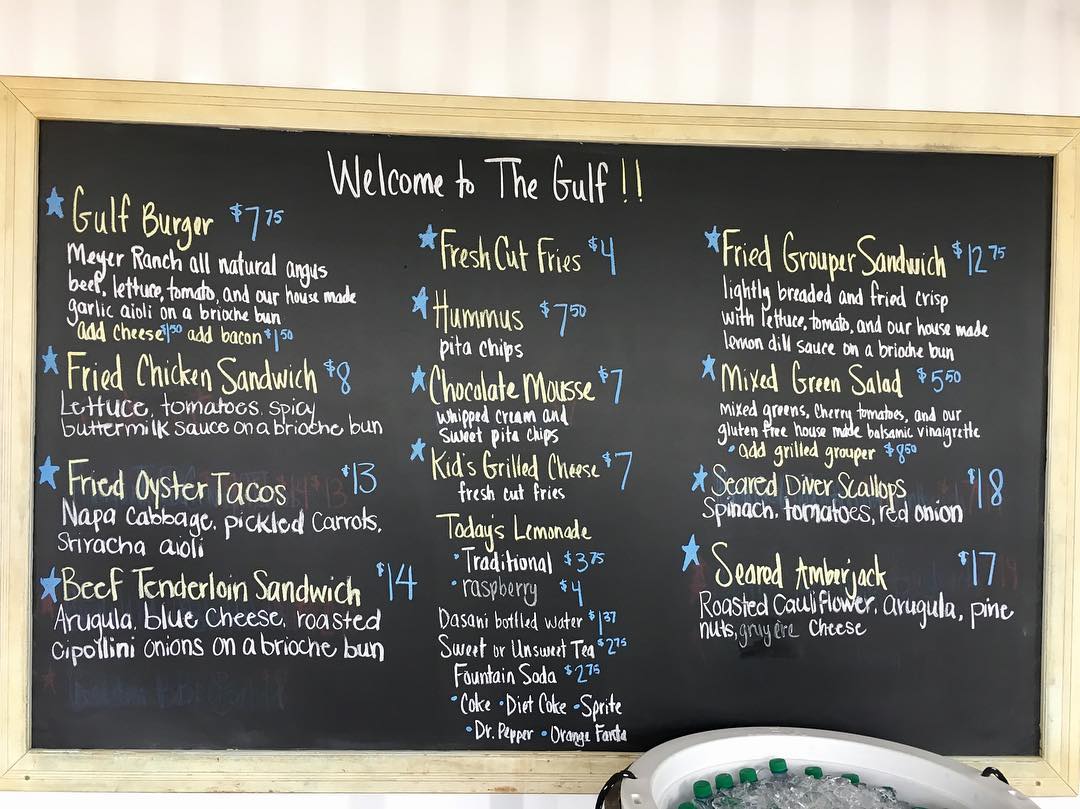 Welcome to The Gulf !!
Gulf Burger $7.75
Meyer Ranch all natural angus
beef, lettuce, tomato, and our house made
garlic aioli on a brioche bun
add cheese $1.50 add bacon $1.50
Fried Chicken Sandwich $8
Lettuce, tomatoes, spicy
buttermilk sauce on a brioche bun
Fried Oyster Tacos $13
Napa Cabbage, pickled Carrots,
Sriracha aioli
Beef Tenderloin Sandwich $14
Arugula, blue Cheese, roasted
cipollini onions on a brioche bun
Fresh Cut Fries $4
Hummus $7.50
pita chips
Chocolate Mousse $7
whipped cream and
Sweet pita chips
Kid's Grilled Cheese $7
fresh cut fries
Today's Lemonade
• Traditional $3.75
• raspberry $4
Dasani bottled water $1.37
Sweet or Unsweet Tea $2.75
Fountain Soda $2.75
• Coke • Diet Coke • Sprite
• Dr. Pepper • Orange Fanta
Fried Grouper Sandwich $12.75
lightly breaded and fried crisp
with lettuce, tomato, and our house made
lemon dill sauce on a brioche bun
Mixed Green Salad $5.50
mixed greens, Cherry tomatoes, and our
gluten free house made balsamic vinaigrette
• add grilled grouper $8.50
Seared Diver Scallops $18
Spinach, tomatoes, red onion
Seared Amberjack $17
Roasted Cauliflower, arugula, pine
nuts, gruyere Cheese